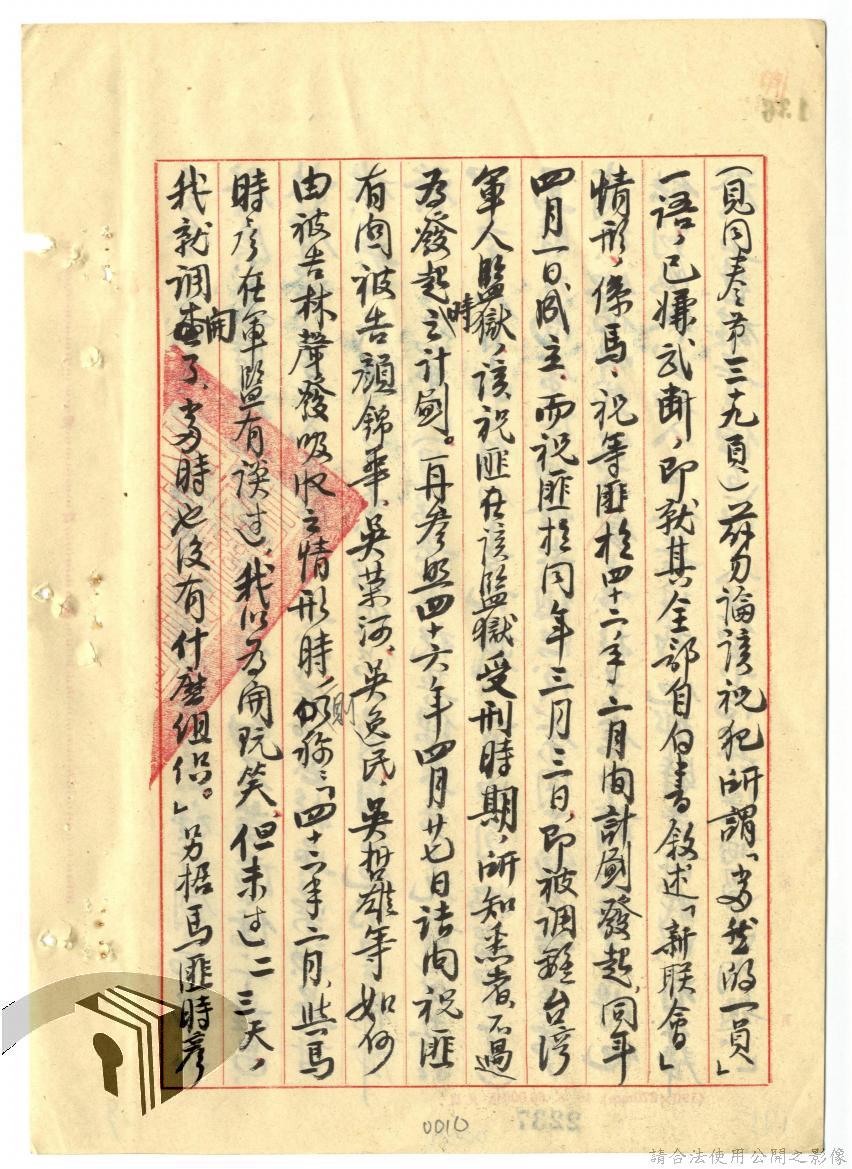 (見同卷第三十九頁)茲勿論該祝犯所謂「當然的一員」
一語，已嫌武斷，即就其全部自白書敘述「新联會」
情形，係馬、祝等匪於四十二年二月間計劃發起，同年
四月一日成立，而祝匪於同年三月三日，即被調離台湾
軍人監獄，該祝匪在該監獄受刑時期，所知悉者，不過
為發起時之計劃。再參照四十六年四月廿七日詰问祝匪
有関被告顏錦華、吳荣河、吳逸民、吳哲雄等如何
由被告林聲發吸收之情形時，則仍稱：「四十二年二月，與馬
時彥在軍監有談过，我以為開玩笑，但未过二三天，
我就调開了，當時也沒有什麽组织。」另據馬匪時彥
0010
2237
136
請合法使用公開之影像